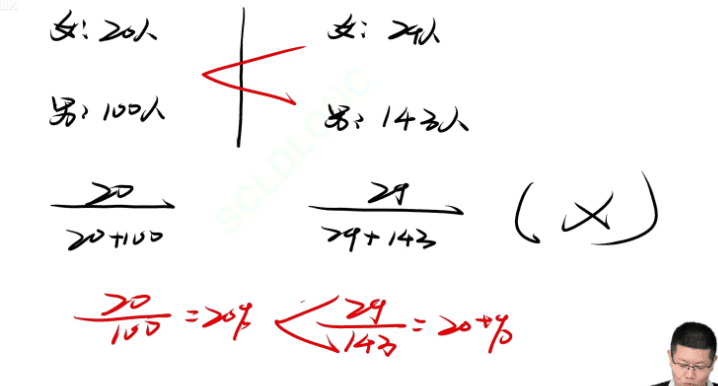 女：20人
女：29人
男：100人
男：143人
20/(20+100) 29/(29+143) (×)
20/100=20% < 29/143=20+%
SCLDLOGIC